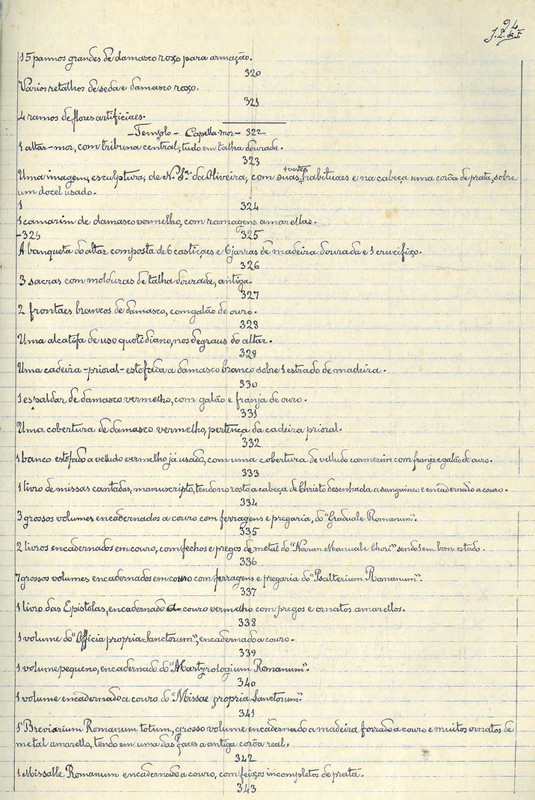 94
15 pannos grandes de damasco roxo para armação.
320
Varios retalhos de seda e damasco roxo.
321
4 ramos de flores artificiaes.
-Templo - Capella-mor- 322
1 altar-mor, com tribuna central, tudo em talha dourada.
323
Uma imagem, esculptura, de N.ª Sr.ª da Oliveira, com suas vestes habituaes e na cabeça uma corôa de prata, sobre
um docel usado.
1 324
1 camarim de damasco vermelho, com ramagens amarellas.
-325 325
A banqueta do altar composta de 6 castiçaes e 6 jarras de madeira dourada e 1 crucifixo.
326
3 sacras com molduras de talha dourada, antiga.
327
2 frontaes brancos de damasco, com galão de ouro.
328
Uma alcatifa de uso quotidiano, nos degraus do altar.
329
Uma cadeira -prioral- estofada a damasco branco sobre 1 estrado de madeira.
330
1 espaldar de damasco vermelho, com galão e franja de ouro.
331
Uma cobertura de damasco vermelho, pertença da cadeira prioral.
332
1 banco estofado a velludo vermelho já usado, com uma cobertura de velludo carmezim com franja e galão de ouro.
333
1 livro de missas cantadas, manuscripto, tendo no rosto a cabeça de Christo desenhada a sanguineo e encadernado a couro.
334
3 grossos volumes encadernados a couro com ferragens e pregaria, do "Graduale Romanum".
335
2 livros encadernados em couro, com fechos e pregos de metal do "Manuale Chori" sendo 1 em bom estado.
336
7 grossos volumes encadernados em couro com ferragens e pregaria do "Psalterium Romanum".
337
1 livro das Epistolas, encadernado a couro vermelho com pregos e ornatos amarellos.
338
1 volume do "Officia propria Sanctorum", encadernado a couro.
339
1 volume pequeno, encadernado do "Martyrologium Romanum".
340
1 volume encadernado a couro do "Missae propria Sanctorum".
341
1 "Breviarium Romanum totum, grosso volume encadernado a madeira forrado a couro e muitos ornatos de
metal amarello, tendo em uma das faces a antiga corôa real.
342
1 Missalle Romanum encadernado a couro, com feixos incompletos de prata.
343